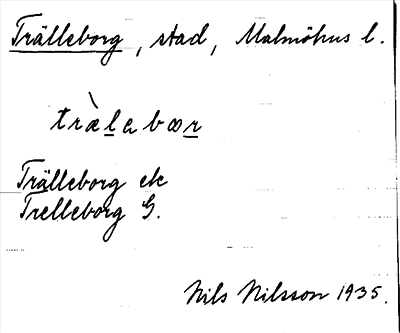 Trälleborg, stad, Malmöhus l.
Trälleborg ek
Trelleborg G.
Nils Nilsson 1935.